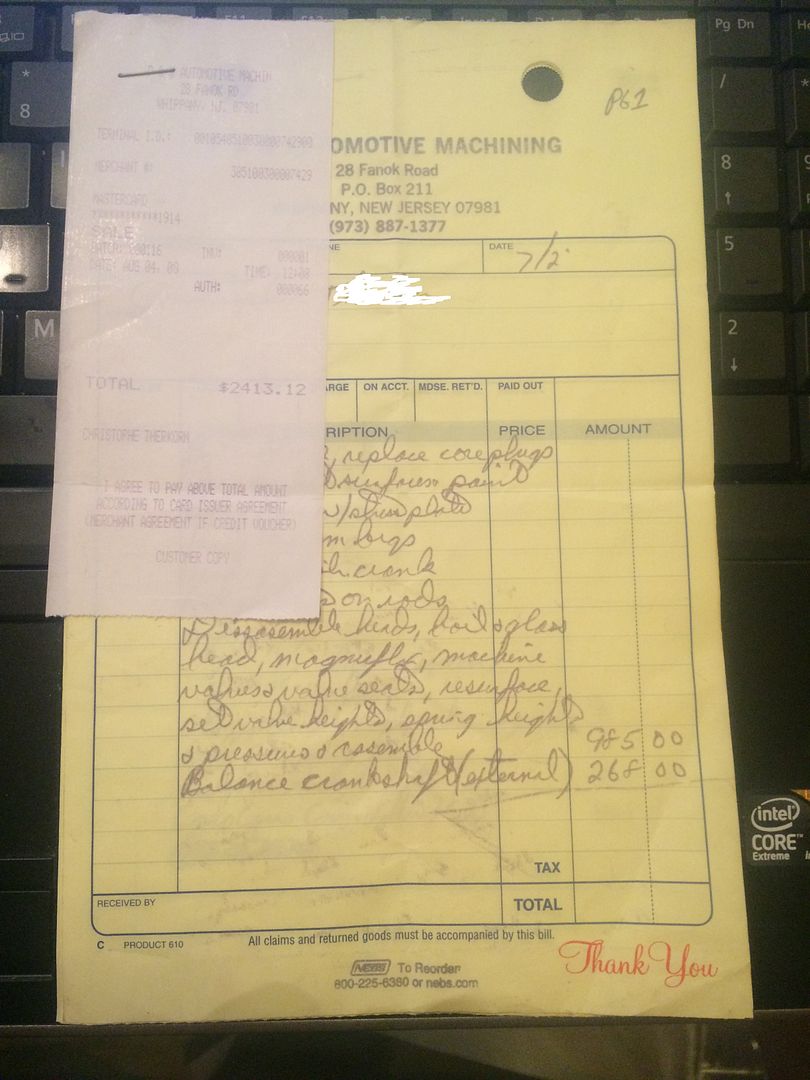 AUTOMOTIVE MACHIN
28 FANOK RD
WHIPPANY, NJ. 07981
TERMINAL I.D.:
MERCHANT #:
MASTERCARD
1914
SALE
INV: 000001
DATE: AUG 04, 09 TIME: 12:08
AUTH: 000066
TOTAL $2413.12
CHRISTOPHE THERKORN
I AGREE TO PAY ABOVE TOTAL AMOUNT
ACCORDING TO CARD ISSUER AGREEMENT
(MERCHANT AGREEMENT IF CREDIT VOUCHER)
CUSTOMER COPY
P61
OMOTIVE MACHINING
28 Fanok Road
P.O. Box 211
NY, NEW JERSEY 07981
(973) 887-1377
NE
DATE 7/2
ARGE ON ACCT. MDSE. RET'D. PAID OUT
RIPTION PRICE AMOUNT
, replace coreplugs
paint
crank
on rods
Dissasemble heads, boil & glass
head, magnuflx, machine
valves & valve seats, resurface,
set valve heights, spring heights
& pressures & reasemble 985 00
Balance crankshaft (external) 268 00
TAX
RECEIVED BY TOTAL
C PRODUCT 610 All claims and returned goods must be accompanied by this bill.
Thank You
NEBS To Reorder
800-225-6380 or nebs.com
Pg Dn
*
8
/
8
↑
5
2
↓
M
intel
CORE™
Extreme